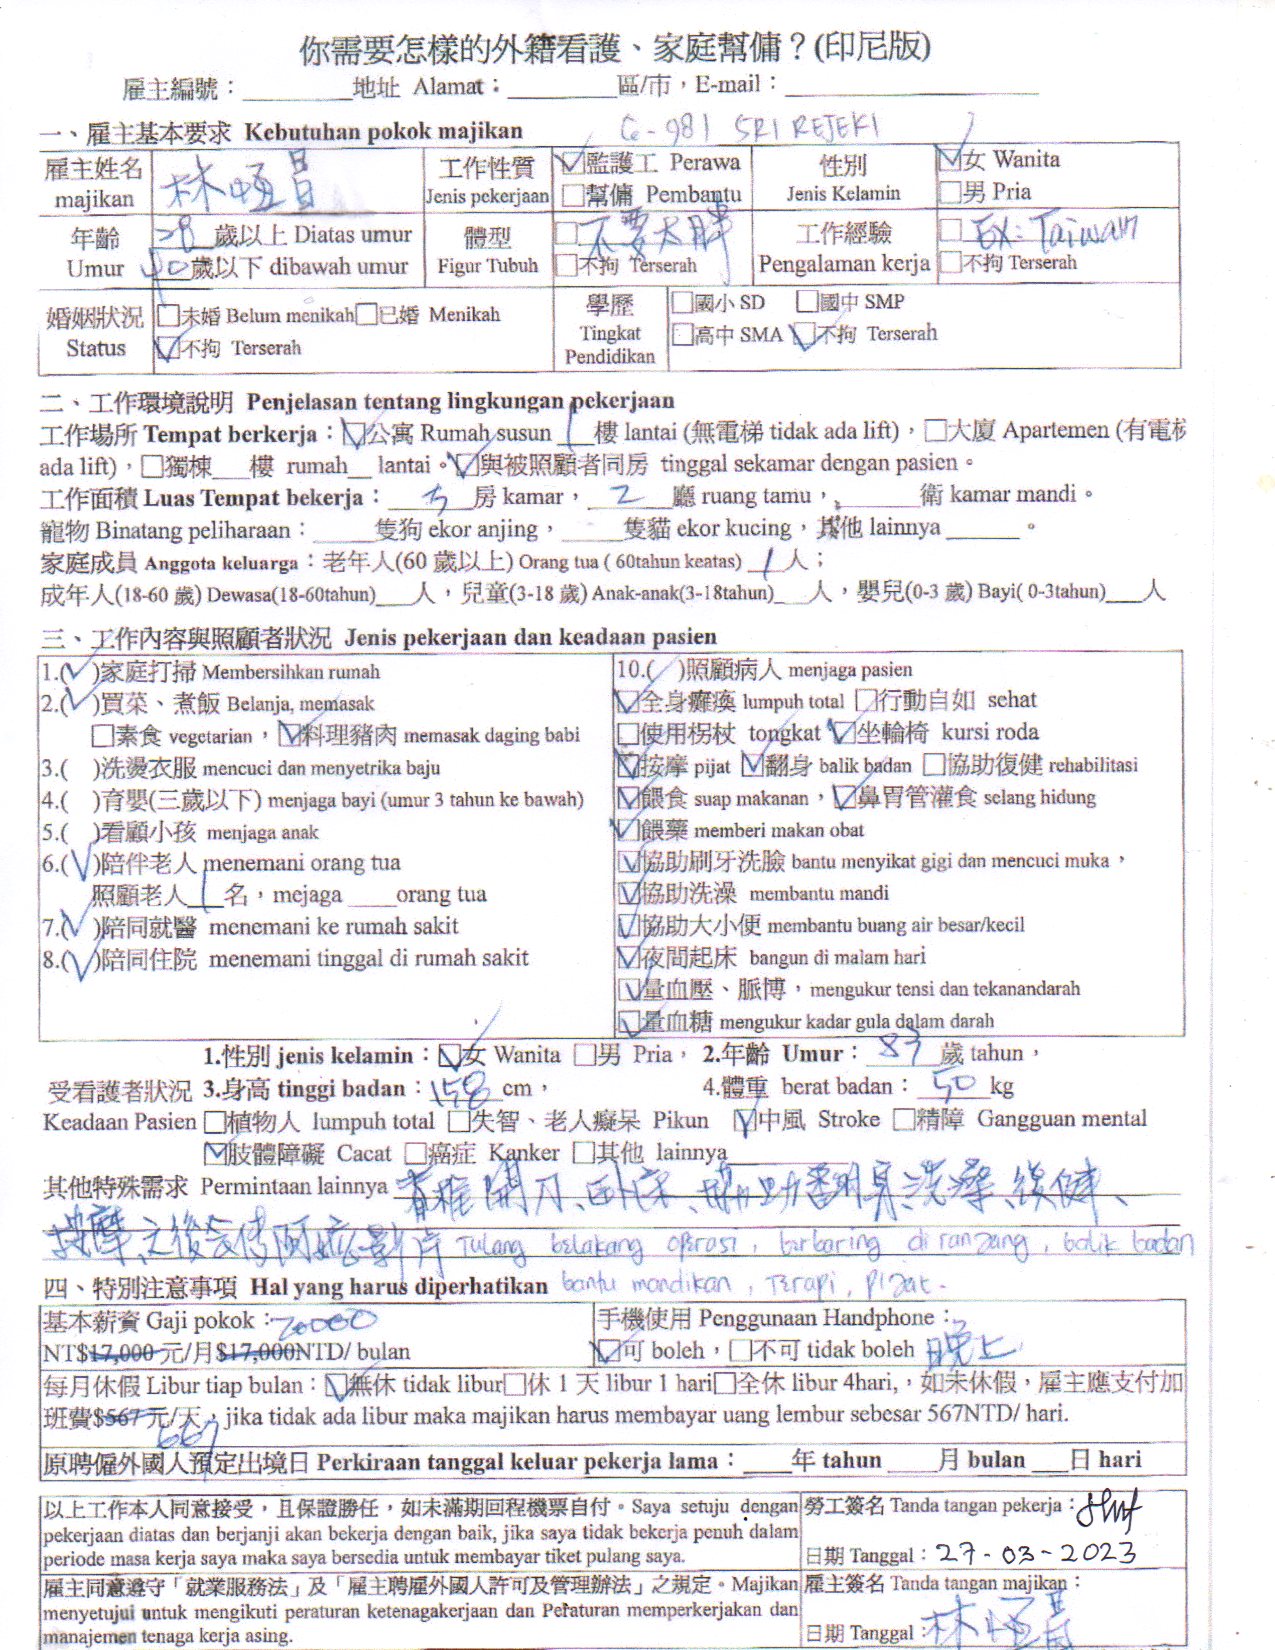 你需要怎樣的外籍看護、家庭幫傭？(印尼版)
雇主編號：________地址 Alamat：________區/市，E-mail：________
一、雇主基本要求 Kebutuhan pokok majikan G-981 SRI REJEKI
雇主姓名 majikan 林恆昌 工作性質 Jenis pekerjaan ☑監護工 Perawa □幫傭 Pembantu 性別 Jenis Kelamin ☑女 Wanita □男 Pria
年齡 Umur 28 歲以上 Diatas umur 40 歲以下 dibawah umur 體型 Figur Tubuh □不要太胖 □不拘 Terserah 工作經驗 Pengalaman kerja □Ex: Taiwan □不拘 Terserah
婚姻狀況 Status □未婚 Belum menikah□已婚 Menikah ☑不拘 Terserah 學歷 Tingkat Pendidikan □國小 SD □國中 SMP □高中 SMA ☑不拘 Terserah
二、工作環境說明 Penjelasan tentang lingkungan pekerjaan
工作場所 Tempat berkerja：☑公寓 Rumah susun 1 樓 lantai (無電梯 tidak ada lift)，□大廈 Apartemen (有電梯
ada lift)，□獨棟___樓 rumah__ lantai。☑與被照顧者同房 tinggal sekamar dengan pasien。
工作面積 Luas Tempat bekerja： 3 房 kamar， 2 廳 ruang tamu，______衛 kamar mandi。
寵物 Binatang peliharaan：____隻狗 ekor anjing，____隻貓 ekor kucing，其他 lainnya ______。
家庭成員 Anggota keluarga：老年人(60 歲以上) Orang tua ( 60tahun keatas) 1 人；
成年人(18-60 歲) Dewasa(18-60tahun)___人，兒童(3-18 歲) Anak-anak(3-18tahun)___人，嬰兒(0-3 歲) Bayi( 0-3tahun)___人
三、工作內容與照顧者狀況 Jenis pekerjaan dan keadaan pasien
1.(✓)家庭打掃 Membersihkan rumah
2.(✓)買菜、煮飯 Belanja, memasak
□素食 vegetarian，☑料理豬肉 memasak daging babi
3.( )洗燙衣服 mencuci dan menyetrika baju
4.( )育嬰(三歲以下) menjaga bayi (umur 3 tahun ke bawah)
5.( )看顧小孩 menjaga anak
6.(✓)陪伴老人 menemani orang tua
照顧老人 1 名，mejaga ____orang tua
7.(✓)陪同就醫 menemani ke rumah sakit
8.(✓)陪同住院 menemani tinggal di rumah sakit
10.( )照顧病人 menjaga pasien
☑全身癱瘓 lumpuh total □行動自如 sehat
□使用柺杖 tongkat ☑坐輪椅 kursi roda
☑按摩 pijat ☑翻身 balik badan □協助復健 rehabilitasi
☑餵食 suap makanan，☑鼻胃管灌食 selang hidung
☑餵藥 memberi makan obat
☑協助刷牙洗臉 bantu menyikat gigi dan mencuci muka，
☑協助洗澡 membantu mandi
☑協助大小便 membantu buang air besar/kecil
☑夜間起床 bangun di malam hari
☑量血壓、脈博，mengukur tensi dan tekanandarah
☑量血糖 mengukur kadar gula dalam darah
1.性別 jenis kelamin：☑女 Wanita □男 Pria， 2.年齡 Umur： 83 歲 tahun，
受看護者狀況 3.身高 tinggi badan：158 cm， 4.體重 berat badan： 50 kg
Keadaan Pasien □植物人 lumpuh total □失智、老人癡呆 Pikun ☑中風 Stroke □精障 Gangguan mental
☑肢體障礙 Cacat □癌症 Kanker □其他 lainnya________
其他特殊需求 Permintaan lainnya 脊椎開刀、臥床、協助翻身、洗澡、復健、
按摩、之後會傳阿嬤影片 Tulang belakang operasi, berbaring di ranjang, balik badan
四、特別注意事項 Hal yang harus diperhatikan bantu mandikan, Terapi, pijat.
基本薪資 Gaji pokok：20000
NT$17,000 元/月$17,000NTD/ bulan
手機使用 Penggunaan Handphone：
☑可 boleh，□不可 tidak boleh 晚上
每月休假 Libur tiap bulan：☑無休 tidak libur□休 1 天 libur 1 hari□全休 libur 4hari,，如未休假，雇主應支付加
班費$567 元/天，jika tidak ada libur maka majikan harus membayar uang lembur sebesar 567NTD/ hari.
667
原聘僱外國人預定出境日 Perkiraan tanggal keluar pekerja lama：____年 tahun ____月 bulan ___日 hari
以上工作本人同意接受，且保證勝任，如未滿期回程機票自付。Saya setuju dengan
pekerjaan diatas dan berjanji akan bekerja dengan baik, jika saya tidak bekerja penuh dalam
periode masa kerja saya maka saya bersedia untuk membayar tiket pulang saya.
勞工簽名 Tanda tangan pekerja：
日期 Tanggal：27-03-2023
雇主同意遵守「就業服務法」及「雇主聘雇外國人許可及管理辦法」之規定。Majikan
menyetujui untuk mengikuti peraturan ketenagakerjaan dan Peraturan memperkerjakan dan
manajemen tenaga kerja asing.
雇主簽名 Tanda tangan majikan：
日期 Tanggal：林恆昌